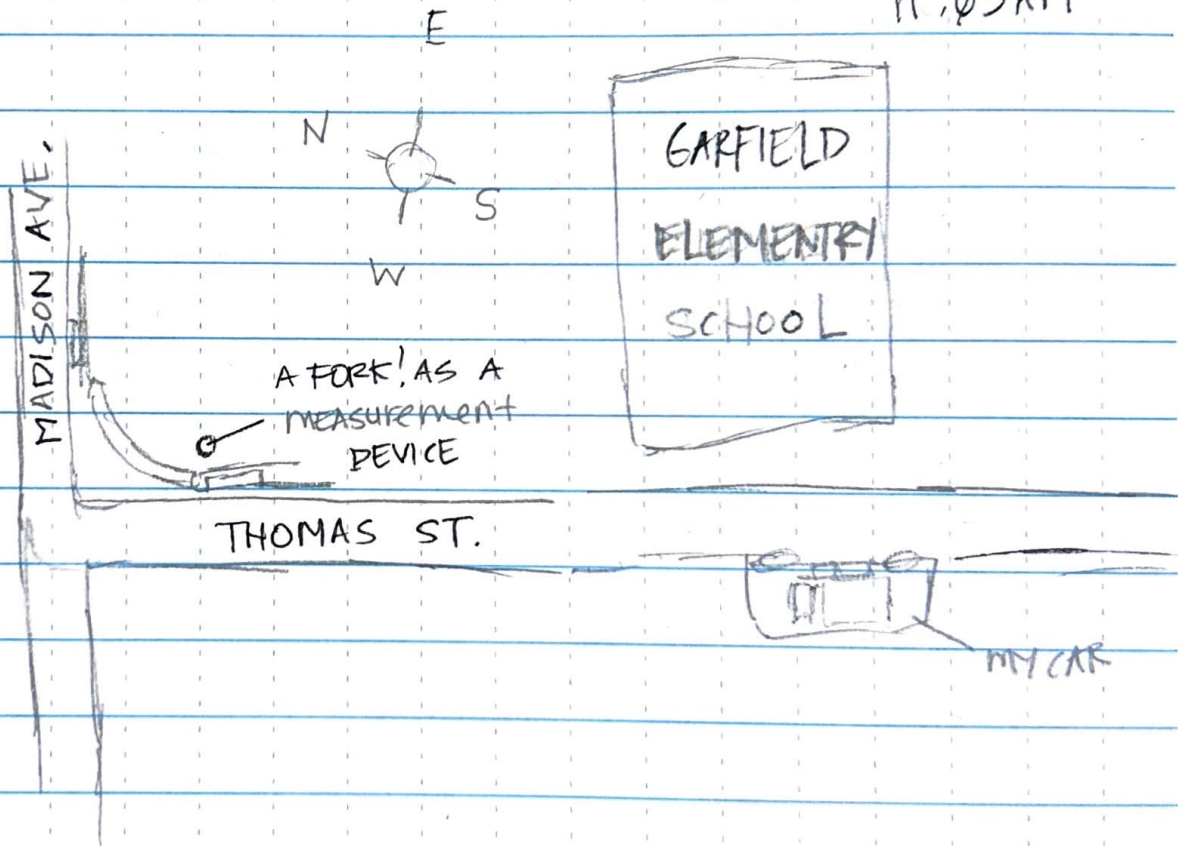 E
N
S
W
MADISON AVE.
GARFIELD
ELEMENTRY
SCHOOL
A FORK! AS A
MEASUREMENT
DEVICE
THOMAS ST.
MY CAR